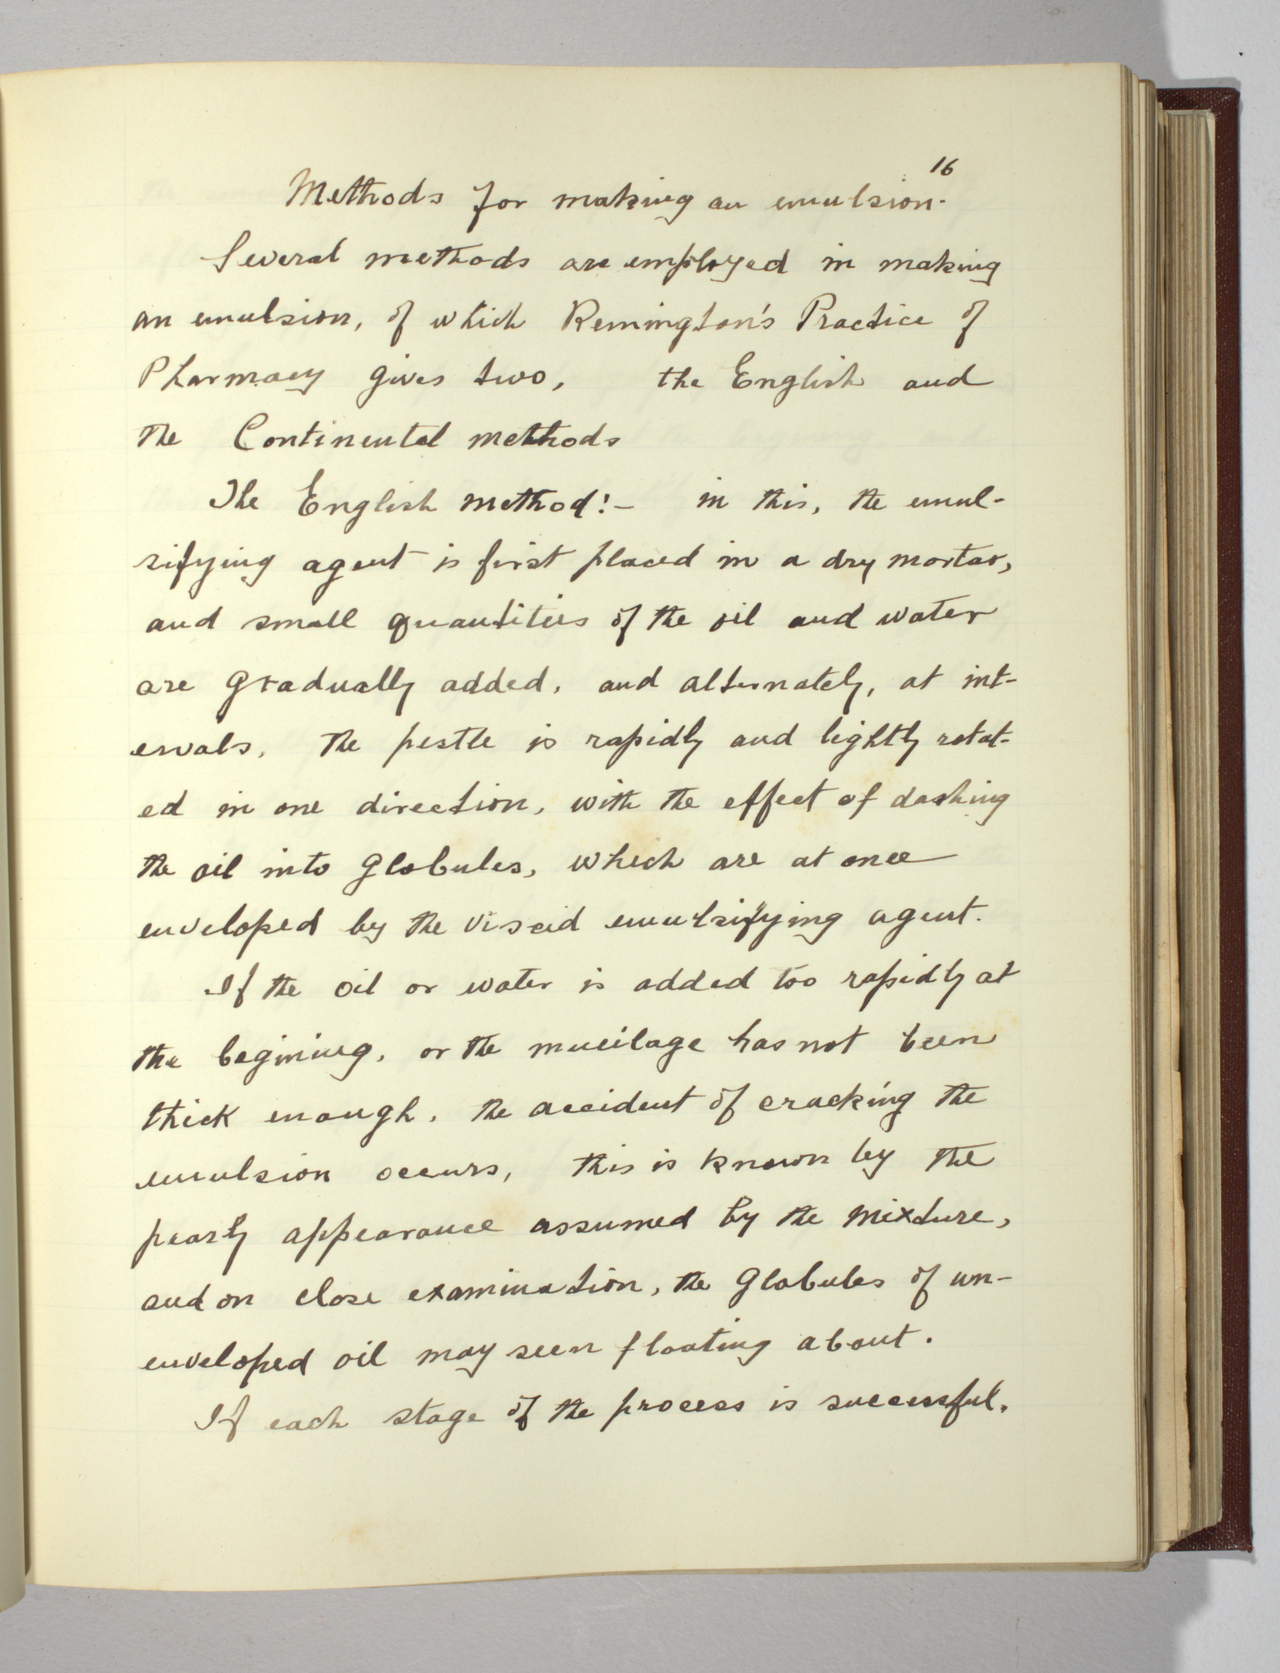 16
Methods for making an emulsion.
Several methods are employed in making
an emulsion, of which Remington's Practice of
Pharmacy gives two, the English and
the Continental methods
The English method:- in this, the emul-
sifying agent is first placed in a dry mortar,
and small quantities of the oil and water
are gradually added, and alternately, at int-
ervals. The pestle is rapidly and lightly rotat-
ed in one direction, with the effect of dashing
the oil into globules, which are at once
enveloped by the viscid emulsifying agent.
If the oil or water is added too rapidly at
the begining, or the mucilage has not been
thick enough, the accident of cracking the
emulsion occurs, this is known by the
pearly appearance assumed by the mixture,
and on close examination, the globules of un-
enveloped oil may seen floating about.
If each stage of the process is successful,